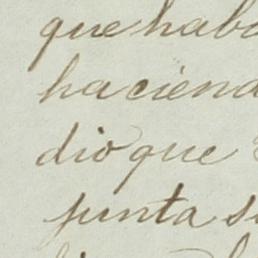 que hab
hacien
dio que
junta s